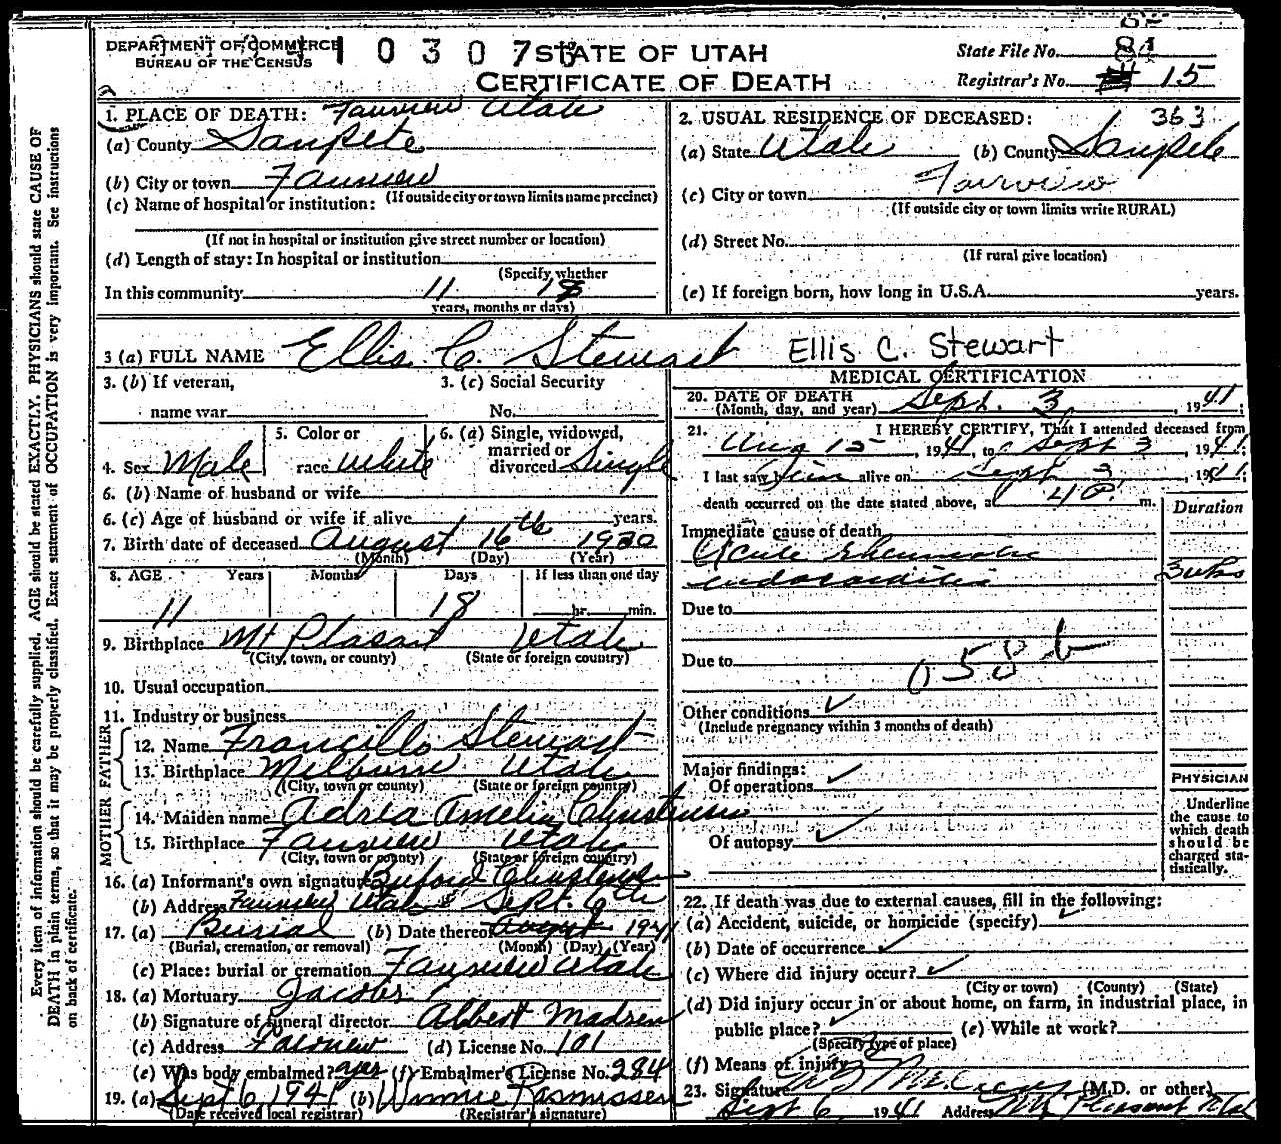 DEPARTMENT OF COMMERCE
BUREAU OF THE CENSUS
STATE OF UTAH
CERTIFICATE OF DEATH
State File No. 84
Registrar's No. 15
1. PLACE OF DEATH: Fairview Utah
(a) County Sanpete
(b) City or town Fairview
(If outside city or town limits name precinct)
(c) Name of hospital or institution:
(If not in hospital or institution give street number or location)
(d) Length of stay: In hospital or institution
(Specify whether
In this community 11 18
years, months or days)
2. USUAL RESIDENCE OF DECEASED: 363
(a) State Utah (b) County Sanpete
(c) City or town Fairview
(If outside city or town limits write RURAL)
(d) Street No.
(If rural give location)
(e) If foreign born, how long in U.S.A. years.
3 (a) FULL NAME Ellis C. Stewart Ellis C. Stewart
3. (b) If veteran,
name war
3. (c) Social Security
No.
4. Sex Male
5. Color or
race White
6. (a) Single, widowed,
married or
divorced Single
6. (b) Name of husband or wife
6. (c) Age of husband or wife if alive years.
7. Birth date of deceased August 16th 1930
(Month) (Day) (Year)
8. AGE Years Months Days If less than one day
11 18 hr. min.
9. Birthplace Mt Plasant Utah
(City, town, or county) (State or foreign country)
10. Usual occupation
11. Industry or business
FATHER
12. Name Francillo Stewart
13. Birthplace Milburn Utah
(City, town or county) (State or foreign country)
MOTHER
14. Maiden name Adria Amelia Christensen
15. Birthplace Fairview Utah
(City, town or county) (State or foreign country)
16. (a) Informant's own signature Buford Christensen
(b) Address Fairview Utah Sept. 6th
17. (a) Burial (b) Date thereof August 1941
(Burial, cremation, or removal) (Month) (Day) (Year)
(c) Place: burial or cremation Fairview Utah
18. (a) Mortuary Jacobs
(b) Signature of funeral director Albert Madsen
(c) Address Fairview (d) License No. 101
(e) Was body embalmed? yes (f) Embalmer's License No. 284
19. (a) Sept 6, 1941 (b) Winnie Rasmussen
(Date received local registrar) (Registrar's signature)
MEDICAL CERTIFICATION
20. DATE OF DEATH
(Month, day, and year) Sept. 3, 1941;
21. I HEREBY CERTIFY, That I attended deceased from
Aug 15, 1941, to Sept 3, 1941;
I last saw him alive on Sept 3, 1941;
death occurred on the date stated above, at m.
Duration
Immediate cause of death
Acute rheumatic
endocarditis 3 wks
Due to
Due to
058 b
Other conditions ✓
(Include pregnancy within 3 months of death)
Major findings:
Of operations ✓
Of autopsy ✓
PHYSICIAN
Underline
the cause to
which death
should be
charged sta-
tistically.
22. If death was due to external causes, fill in the following:
(a) Accident, suicide, or homicide (specify) ✓
(b) Date of occurrence ✓
(c) Where did injury occur? ✓
(City or town) (County) (State)
(d) Did injury occur in or about home, on farm, in industrial place, in
public place? ✓ (e) While at work?
(Specify type of place)
(f) Means of injury
23. Signature (M.D. or other)
Sept 6, 1941 Address Mt Pleasant Utah
Every item of information should be carefully supplied. AGE should be stated EXACTLY. PHYSICIANS should state CAUSE OF
DEATH in plain terms, so that it may be properly classified. Exact statement of OCCUPATION is very important. See instructions
on back of certificate.